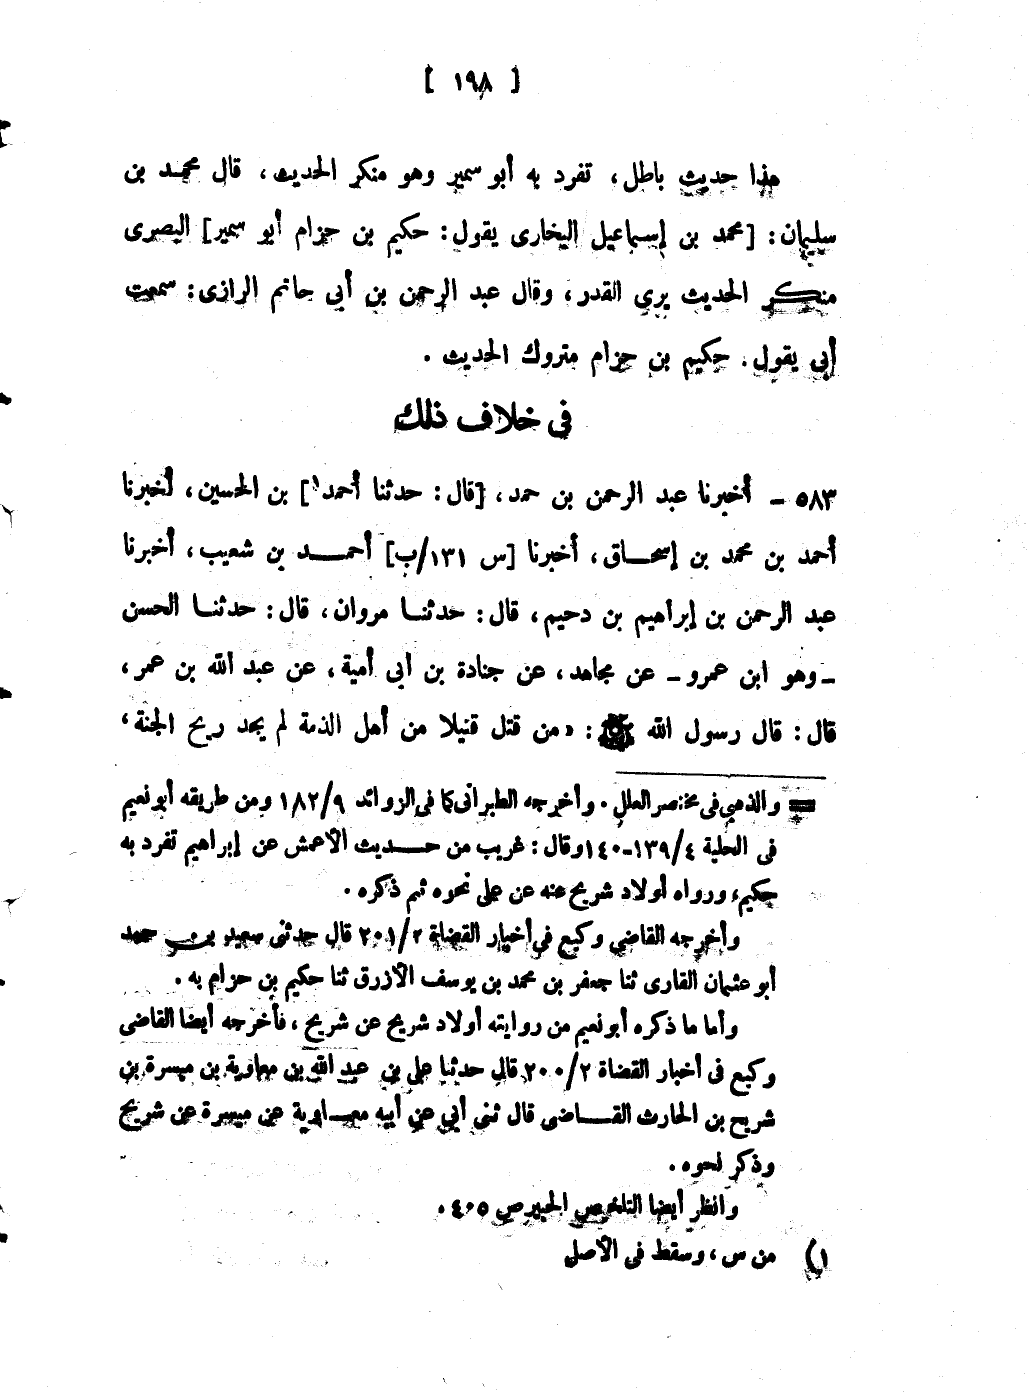 [ ١٩٨ ]
هذا حديث باطل، تفرد به أبو سمير وهو منكر الحديث، قال محمد بن
سليمان: [محمد بن إسماعيل البخارى يقول: حكيم بن حزام أبو سمير] البصرى
منكر الحديث يرى القدر، وقال عبد الرحمن بن أبي حاتم الرازى: سمعت
أبى يقول. حكيم بن حزام متروك الحديث.
فى خلاف ذلك
٥٨٣ – أخبرنا عبد الرحمن بن حمد، [قال: حدثنا أحمد١] بن الحسين، أخبرنا
أحمد بن محمد بن إسحاق، أخبرنا [س ١٣١/ب] أحمد بن شعيب، أخبرنا
عبد الرحمن بن إبراهيم بن دحيم، قال: حدثنا مروان، قال: حدثنا الحسن
– وهو ابن عمرو – عن مجاهد، عن جنادة بن أبى أمية، عن عبد الله بن عمر،
قال: قال رسول الله ﷺ: «من قتل قتيلا من أهل الذمة لم يجد ريح الجنة،
= والذهبي فى مختصر العلل. وأخرجه الطبرانى كما فى الزوائد ١٨٢/٩ ومن طريقه أبو نعيم
فى الحلية ١٣٩/٤-١٤٠ وقال: غريب من حديث الأعمش عن إبراهيم تفرد به
حكيم، ورواه أولاد شريح عنه عن على نحوه ثم ذكره.
وأخرجه القاضي وكيع فى أخبار القضاة ٢٠١/٢ قال حدثنى سعيد بن حمد
أبو عثمان القارى ثنا جعفر بن محمد بن يوسف الأزرق ثنا حكيم بن حزام به.
وأما ما ذكره أبو نعيم من روايته أولاد شريح عن شريح، فأخرجه أيضا القاضى
وكيع فى أخبار القضاة ٢٠٠/٢ قال حدثنا على بن عبد الله بن معاوية بن ميسرة بن
شريح بن الحارث القاضى قال ثنى أبي عن أبيه معاوية عن ميسرة عن شريح
وذكر نحوه.
وانظر أيضا التلخيص الحبير ص ٤٠٥.
١) من س، وسقط فى الأصل